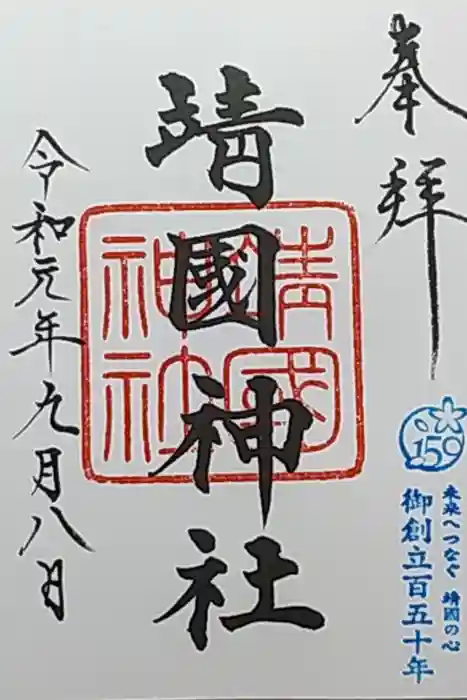 奉拝
靖國神社
靖國
神社
令和元年九月八日
159
未来へつなぐ 靖國の心
御創立百五十年